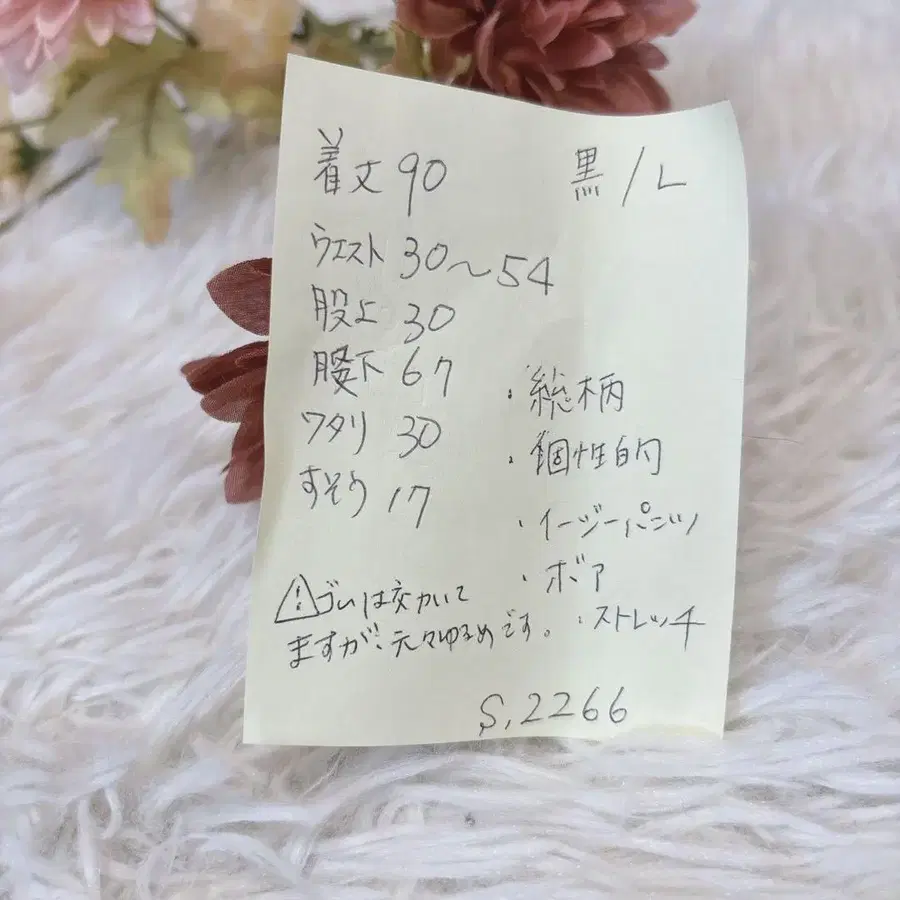 着丈 90
黒/L
ウエスト 30〜54
股上 30
股下 67
ワタリ 30
すそ 17
・総柄
・個性的
・イージーパンツ
・ボア
・ストレッチ
⚠ゴムは交かいて
ますが、元々ゆるめです。
S,2266